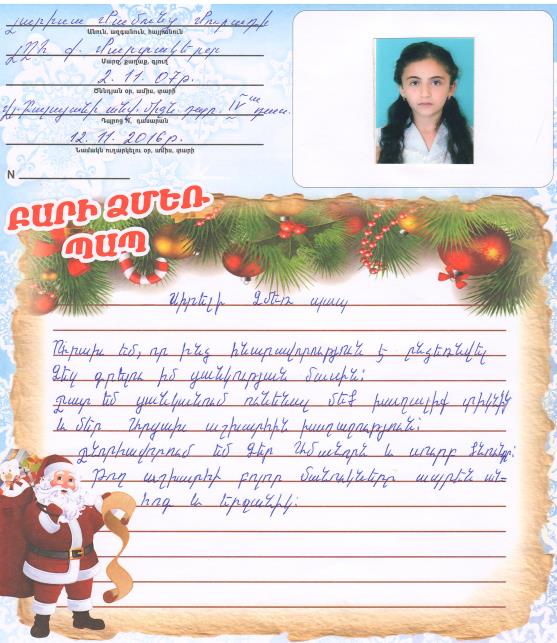 Անուն, ազգանուն, հայրանուն
ԼՂՀ ք. Մարտակերտ
Մարզ, քաղաք, գյուղ
2. 11. 07թ.
Ծննդյան օր, ամիս, տարի
անվ. միջն. դպր. IV դաս.
Դպրոց N, դասարան
12. 11. 2016թ.
Նամակն ուղարկելու օր, ամիս, տարի
N
ԲԱՐԻ ՁՄԵՌ
ՊԱՊ
Սիրելի Ձմեռ պապ
Ուրախ եմ, որ ինձ հնարավորություն է ընձեռնվել
Ձեզ գրելու իմ ցանկության մասին:
Շատ եմ ցանկանում ունենալ մեծ խաղալիք տիկնիկ
և մեր Արցախ աշխարհին խաղաղություն:
Շնորհավորում եմ Ձեր Ամանորն և սուրբ Ծնունդը:
Թող աշխարհի բոլոր մանուկները ապրեն ան-
հոգ և երջանիկ: